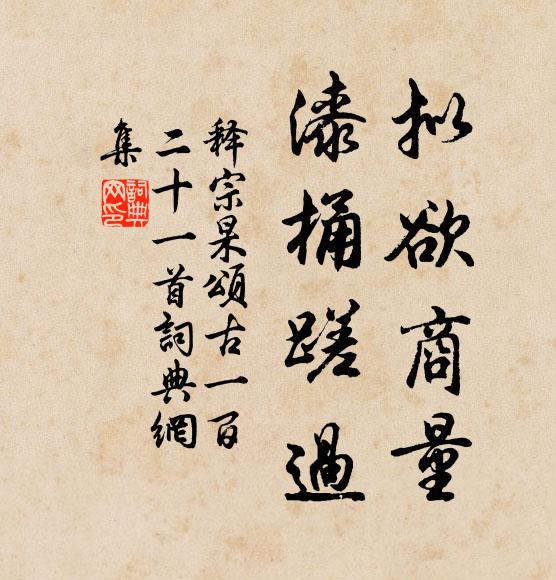 拟欲商量
漆桶蹉過
释宗杲頌古一百
二十一首詞典網
集
詞典
网印